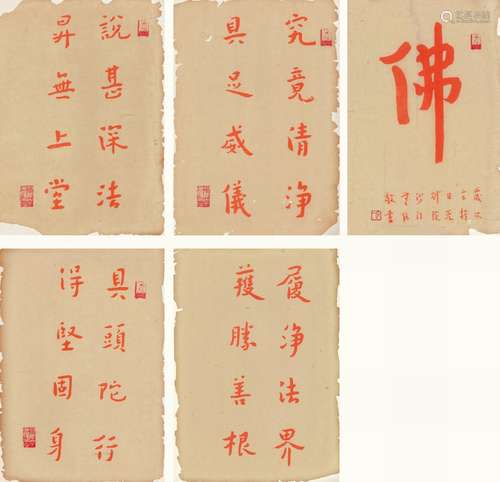 說甚深法
昇無上堂
究竟清淨
具足威儀
佛
具頭陀行
得堅固身
履淨法界
獲勝善根